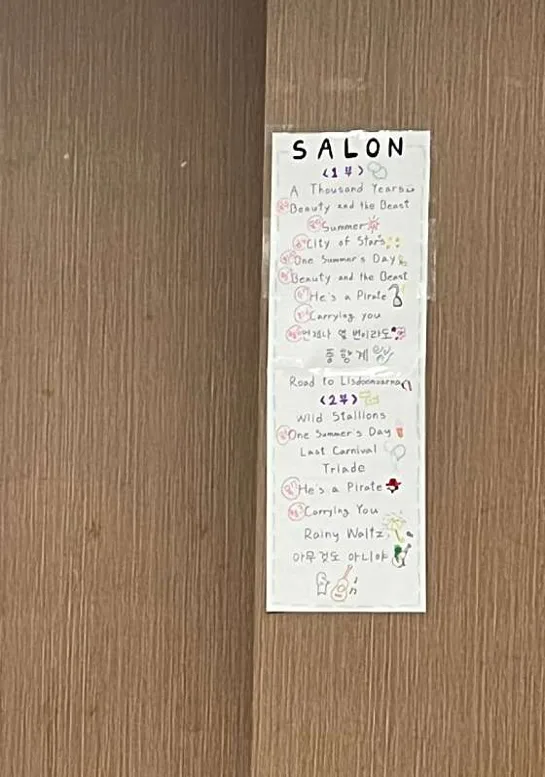 SALON
<1부>
A Thousand Years
Beauty and the Beast
Summer
City of Stars
One Summer's Day
Beauty and the Beast
He's a Pirate
Carrying you
언제나 몇 번이라도
Road to Lisdoonvarna
<2부>
Wild Stallions
One Summer's Day
Last Carnival
Triade
He's a Pirate
Carrying You
Rainy Waltz
아무것도 아니야